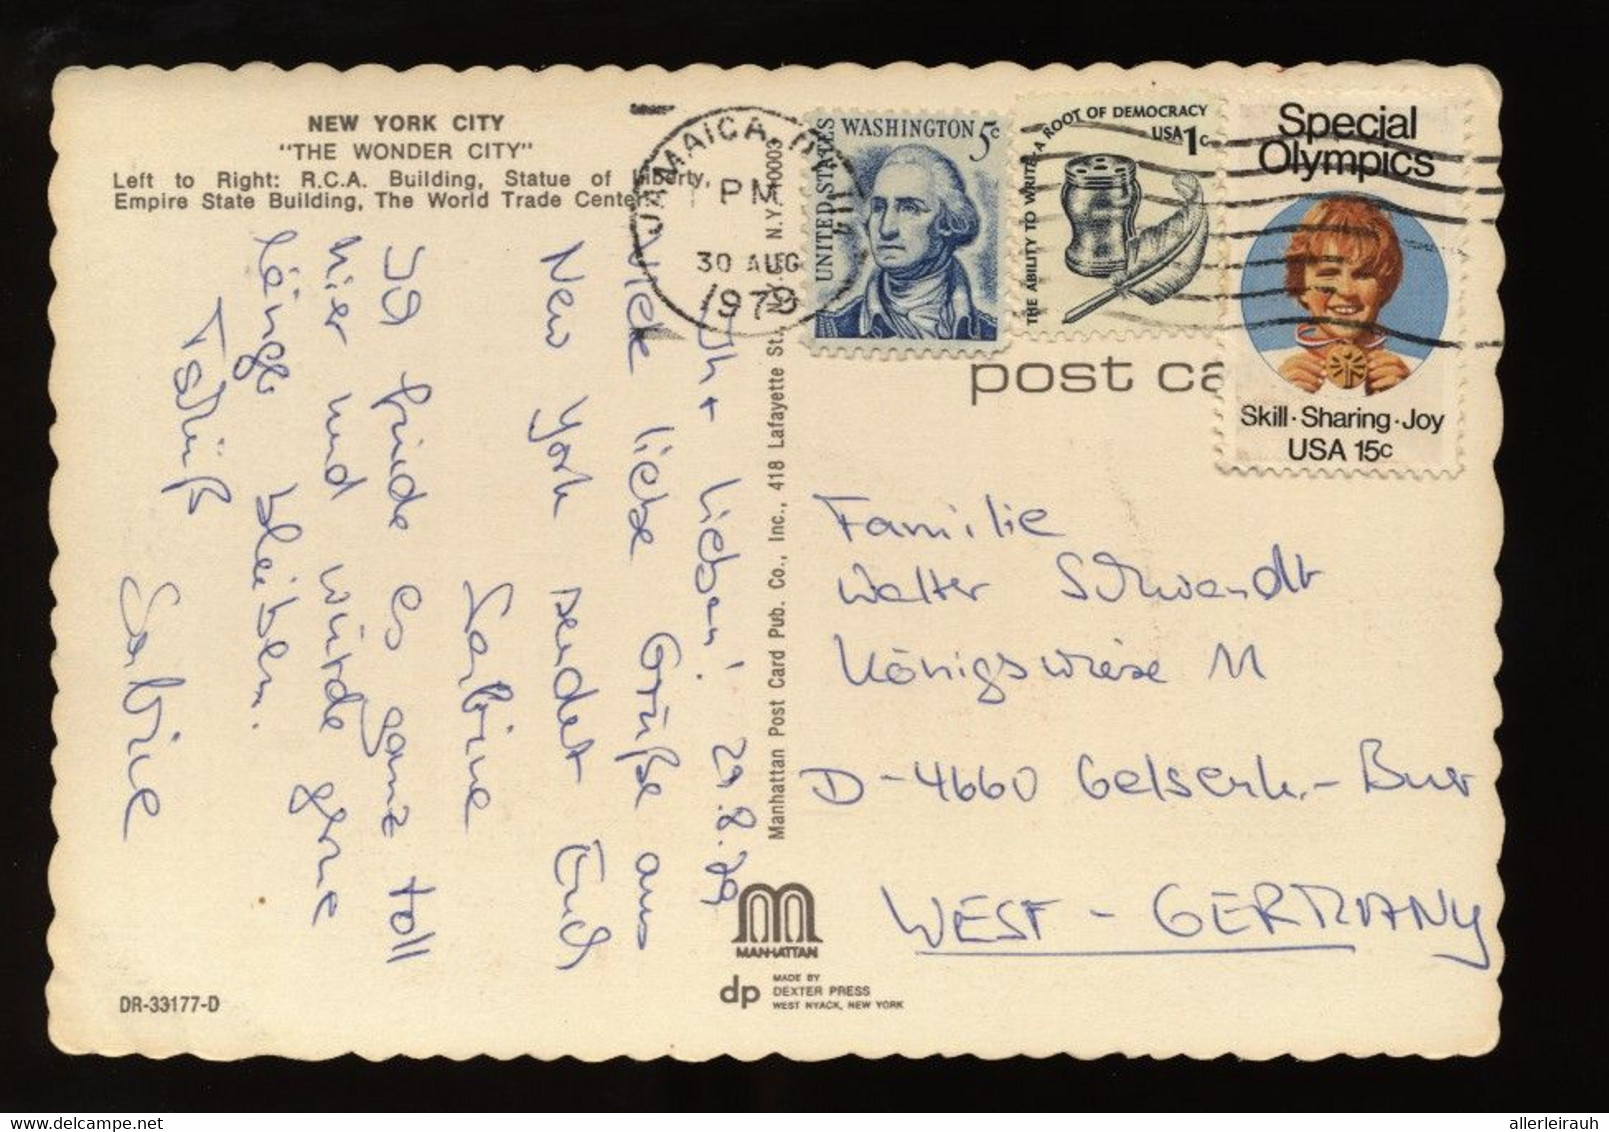 NEW YORK CITY
"THE WONDER CITY"
Left to Right: R.C.A. Building, Statue of Liberty,
Empire State Building, The World Trade Center.
JAMAICA,
PM
30 AUG
1979
UNITED STATES
WASHINGTON 5c
THE ABILITY TO WRITE. A ROOT OF DEMOCRACY
USA 1c
Special
Olympics
Skill · Sharing · Joy
USA 15c
post ca
Manhattan Post Card Pub. Co., Inc., 418 Lafayette St., N.Y. 10003
Lieben! 29.8.79
Viele liebe Grüße aus
New York sendet Euch
Sabine
Ich finde es ganz toll
hier und würde gerne
länger bleiben.
Tschüß
Sabine
Familie
Walter Schwandt
Königswiese 11
D-4660 Gelsenk.-Buer
WEST-GERMANY
MANHATTAN
dp
MADE BY
DEXTER PRESS
WEST NYACK, NEW YORK
DR-33177-D
allerleirauh @ delcampe.net